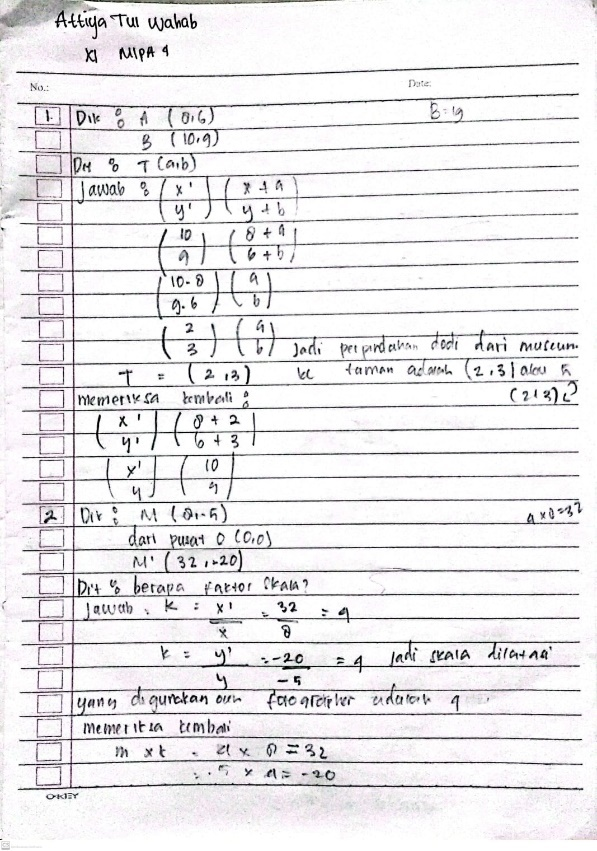 Attiya Tul Wahab
XI MIPA 4
No.:
Date:
1. Dik : A (8,6)
B (10,9)
Dit : T (a,b)
Jawab : (x' y') (x + a y + b)
(10 9) (8 + a 6 + b)
(10-8 9-6) (a b)
(2 3) (a b) Jadi perpindahan dodi dari museum
T = (2,3) ke taman adalah (2,3) atau
memeriksa kembali : (2,3)
(x' y') (8 + 2 6 + 3)
(x' y) (10 9)
2 Dik : M (8,-5) 4 x 8 = 32
dari pusat O (0,0)
M' (32,-20)
Dit : berapa faktor skala?
Jawab : k = x'/x = 32/8 = 4
k = y'/y = -20/-5 = 4 Jadi skala dilatasi
yang digunakan oleh fotographer adalah 4
memeriksa kembali
m x k = 4 x 8 = 32
= -5 x 4 = -20